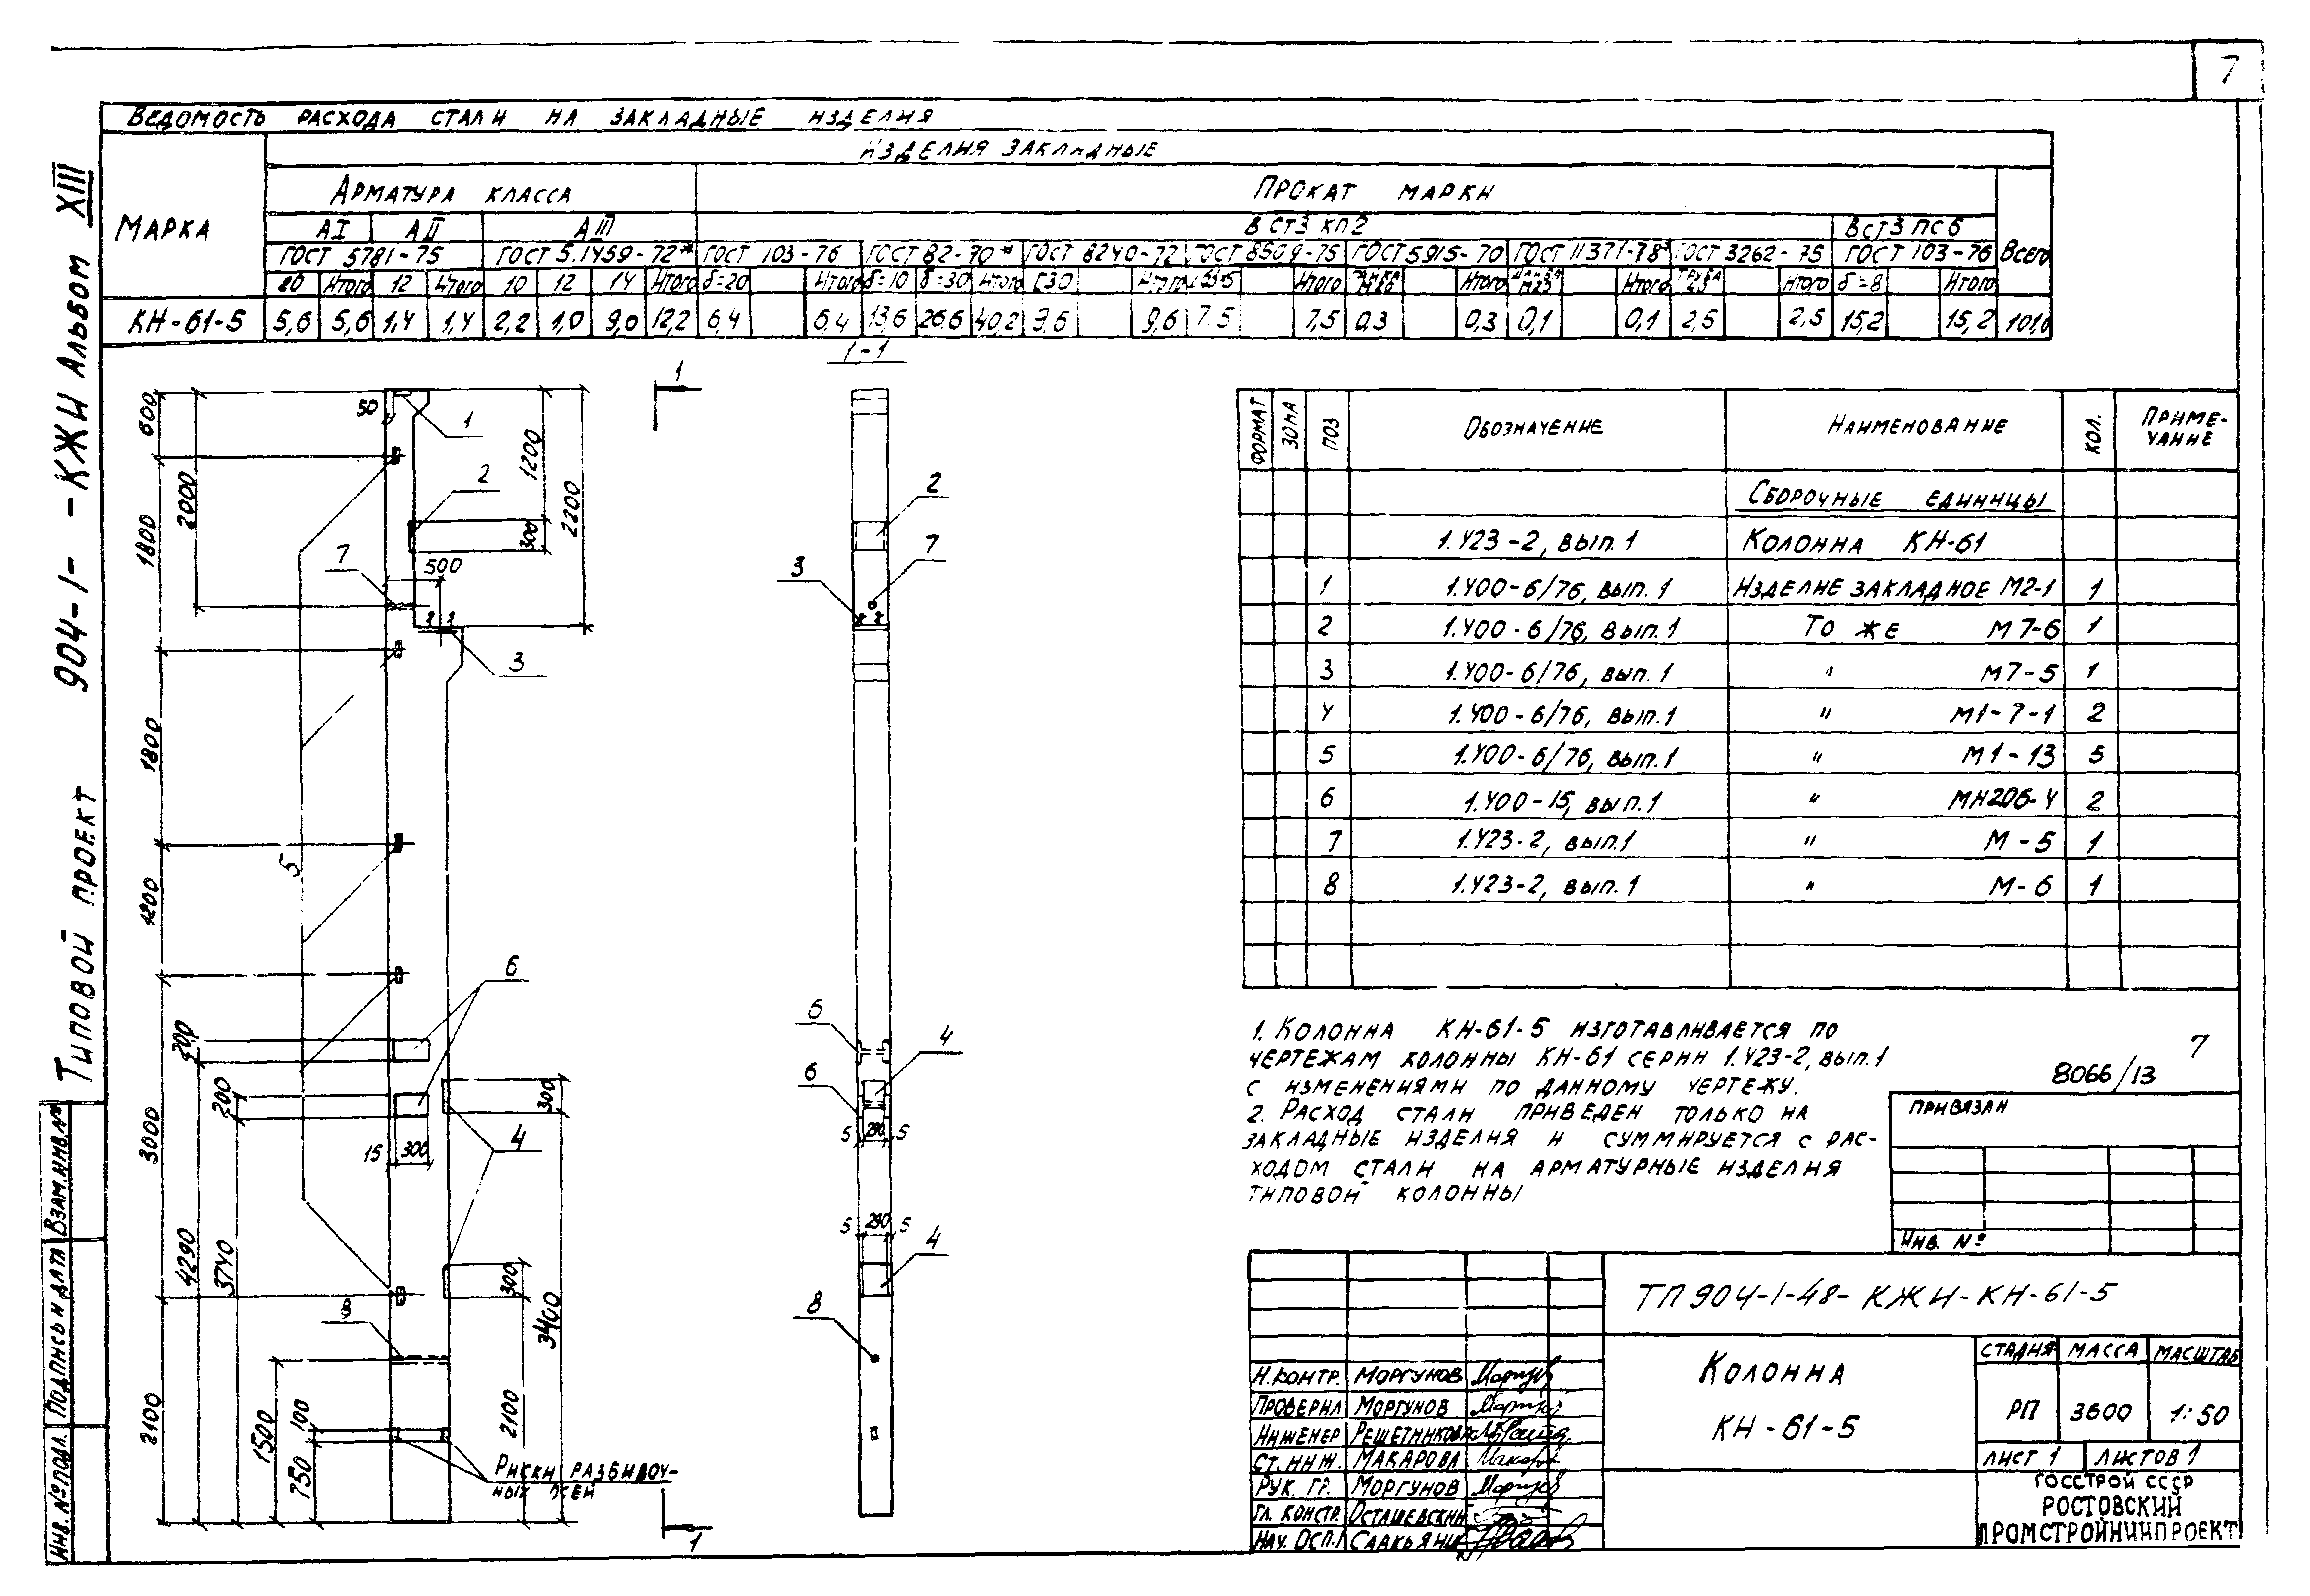 7
Ведомость расхода стали на закладные изделия
Марка
Изделия закладные
Арматура класса
Прокат марки
Всего
АI АII АIII
ВСт3 кп2
ВСт3 пс6
ГОСТ 5781-75
ГОСТ 5.1459-72*
ГОСТ 103-76
ГОСТ 82-70*
ГОСТ 8240-72
ГОСТ 8509-75
ГОСТ 5915-70
ГОСТ 11371-78*
ГОСТ 3262-75
ГОСТ 103-76
20 Итого 12 Итого 10 12 14 Итого δ=20 Итого δ=10 δ=30 Итого [30 Итого Итого Итого Итого Итого δ=8 Итого
КН-61-5 5,6 5,6 1,4 1,4 2,2 1,0 9,0 12,2 6,4 6,4 13,6 26,6 40,2 9,6 9,6 7,5 7,5 0,3 0,3 0,1 0,1 2,5 2,5 15,2 15,2 101,0
Типовой проект 904-1- -КЖИ Альбом XIII
1-1
1
50
1
600
2000
1800
1200
2200
300
2
7
500
3
1800
5
1200
6
200
200
3000
300
4
15
300
4290
3740
300
3400
8
2100
1500
100
750
2100
Риски разбивоч-
ных осей
1
2
7
3
6
4
6
5 290 5
5 290 5
4
8
Формат Зона Поз Обозначение Наименование Кол. Приме-
чание
Сборочные единицы
1.423-2, вып.1 Колонна КН-61
1 1.400-6/76, вып.1 Изделие закладное М2-1 1
2 1.400-6/76, вып.1 То же М7-6 1
3 1.400-6/76, вып.1 " М7-5 1
4 1.400-6/76, вып.1 " М1-7-1 2
5 1.400-6/76, вып.1 " М1-13 5
6 1.400-15, вып.1 " МН206-4 2
7 1.423-2, вып.1 " М-5 1
8 1.423-2, вып.1 " М-6 1
1. Колонна КН-61-5 изготавливается по
чертежам колонны КН-61 серии 1.423-2, вып.1
с изменениями по данному чертежу.
2. Расход стали приведен только на
закладные изделия и суммируется с рас-
ходом стали на арматурные изделия
типовой колонны
7
8066/13
Привязан
Инв. №
ТП 904-1-48-КЖИ-КН-61-5
Колонна
КН-61-5
Стадия Масса Масштаб
РП 3600 1:50
Лист 1 Листов 1
Госстрой СССР
Ростовский
Промстройниипроект
Н.контр. Моргунов
Проверил Моргунов
Инженер Решетникова
Ст. инж. Макарова
Рук. гр. Моргунов
Гл. констр. Осташевский
Нач. ОСП-1 Саакьянц
Инв. № подл. Подпись и дата Взам. инв. №